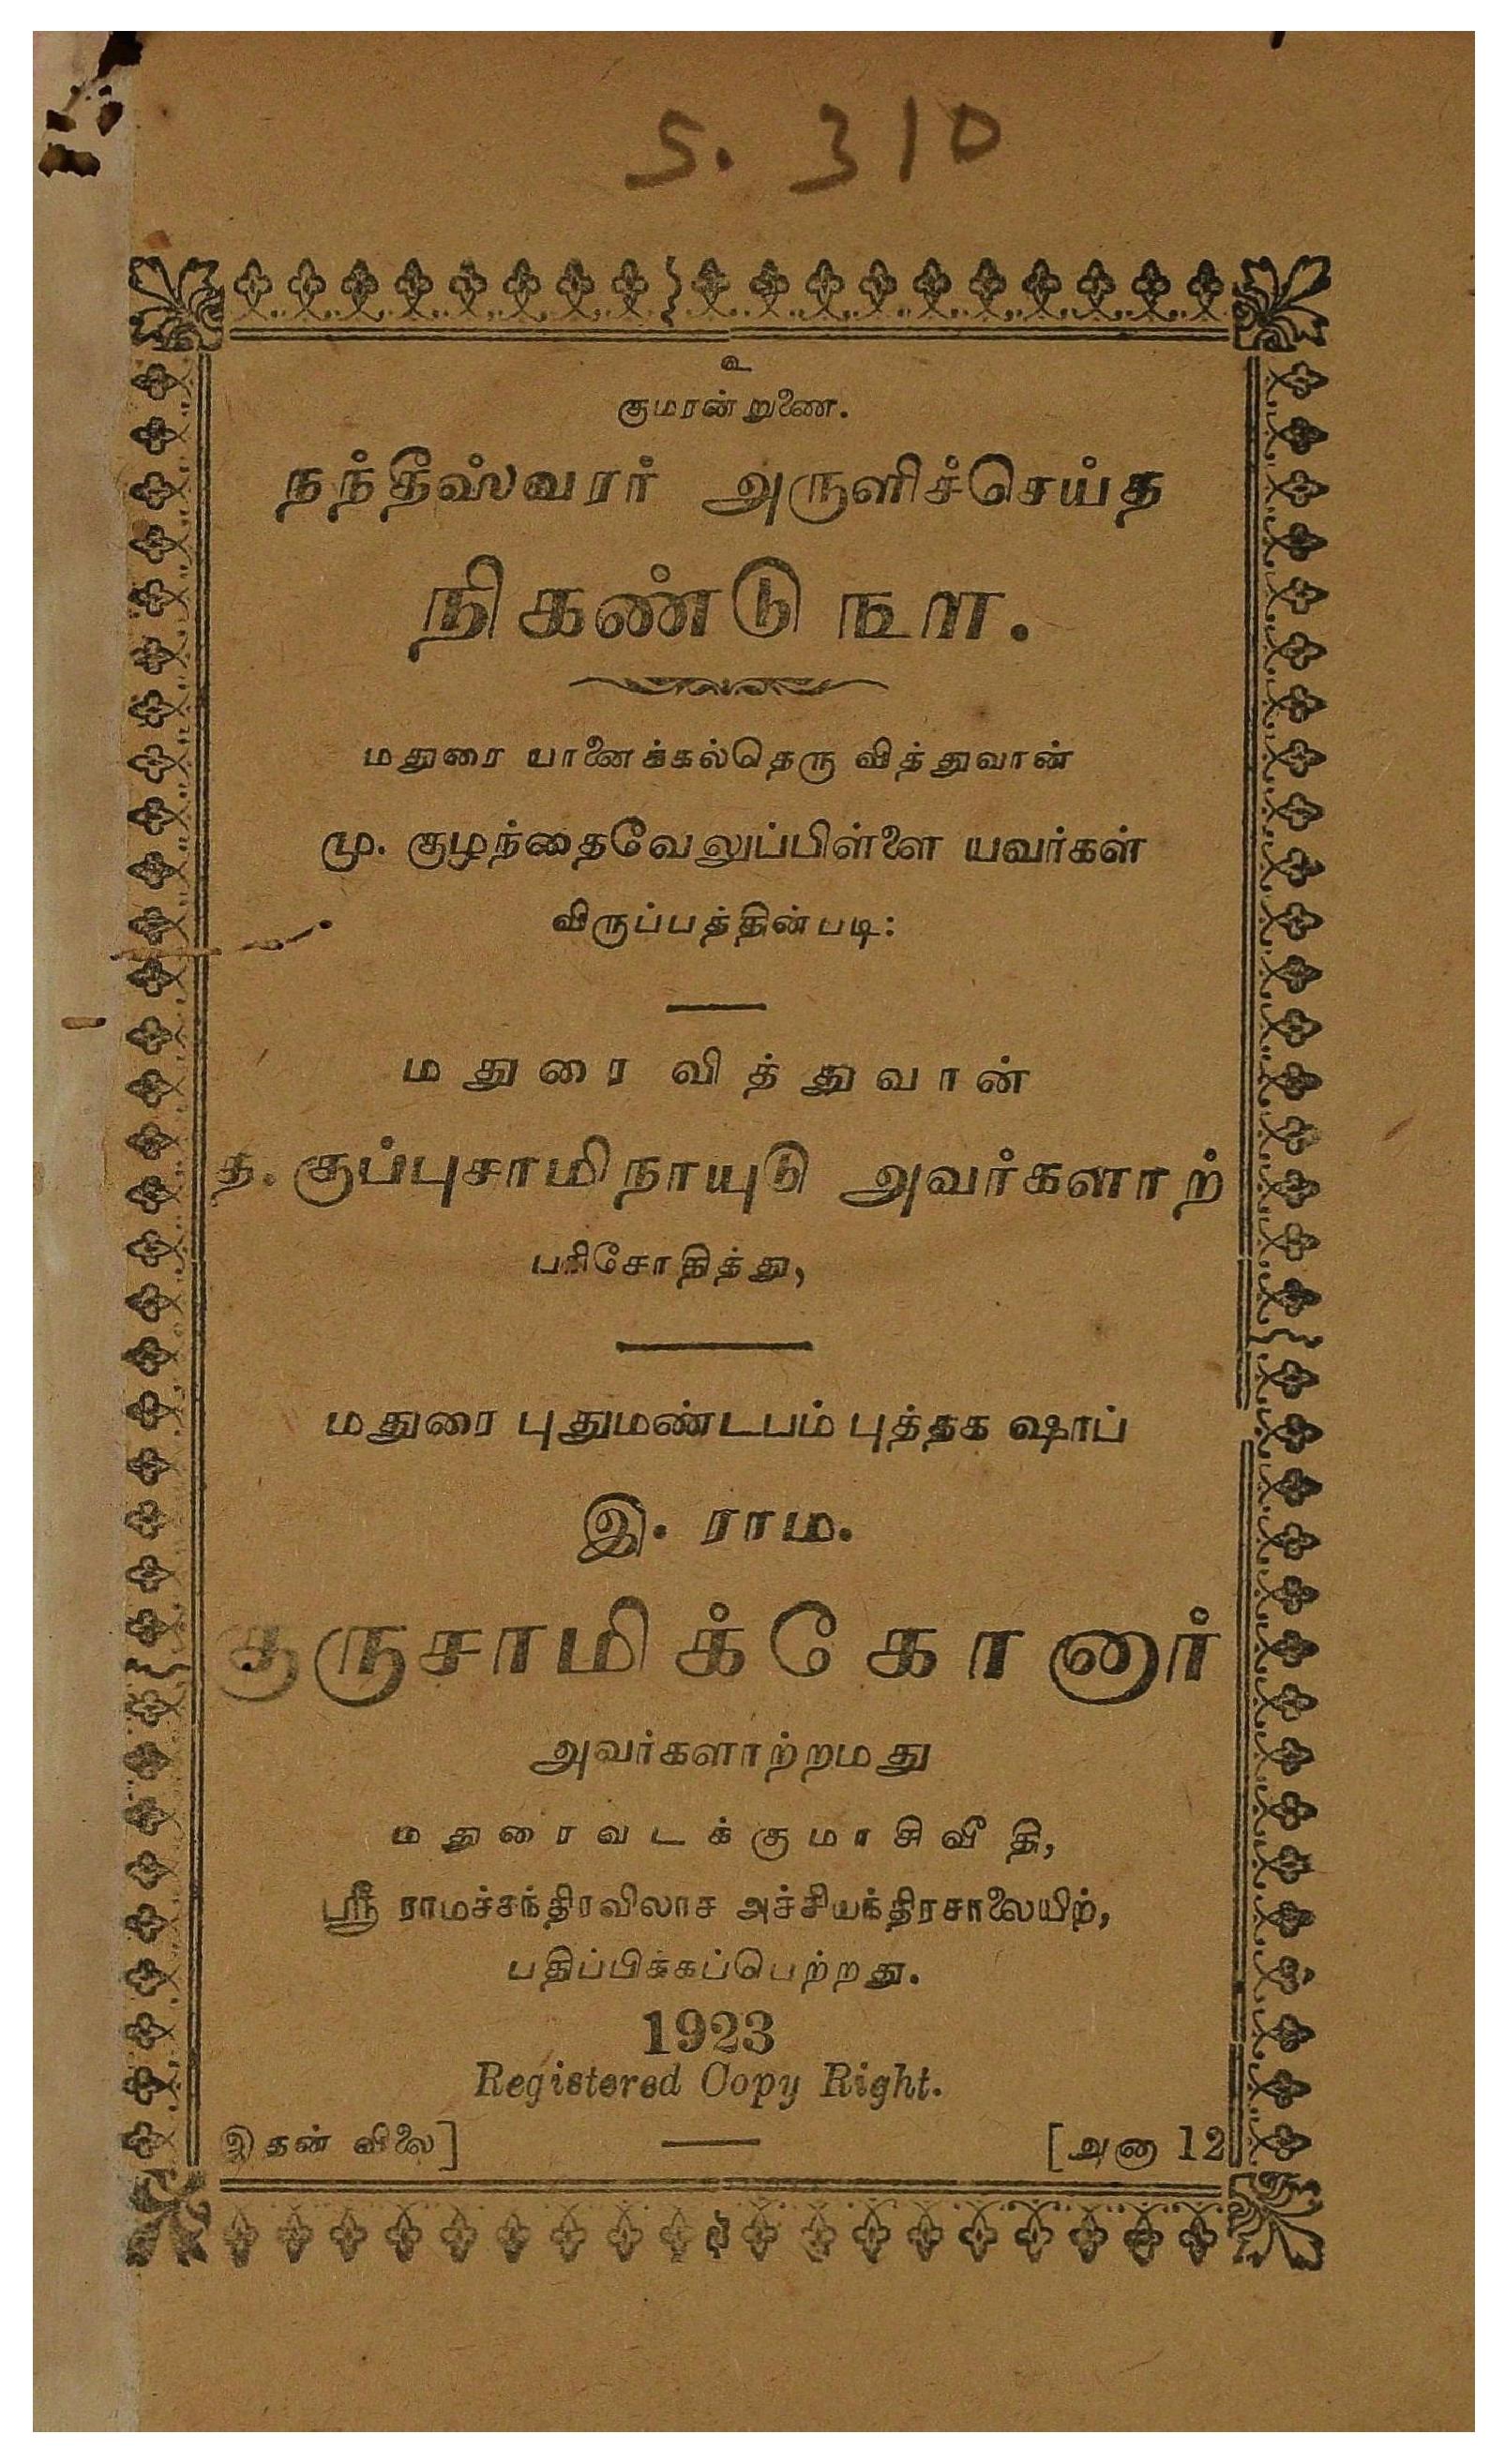 S. 310
உ
குமரன் றுணை.
நந்தீஸ்வரர் அருளிச்செய்த
நிகண்டு ௩௱.
மதுரை யானைக்கல்தெரு வித்துவான்
மு. குழந்தைவேலுப்பிள்ளை யவர்கள்
விருப்பத்தின்படி:
மதுரை வித்துவான்
த. குப்புசாமிநாயுடு அவர்களாற்
பரிசோதித்து,
மதுரை புதுமண்டபம் புத்தக ஷாப்
இ. ராம.
குருசாமிக்கோனார்
அவர்களாற்றமது
மதுரைவடக்குமாசிவீதி,
ஸ்ரீ ராமச்சந்திரவிலாச அச்சியந்திரசாலையிற்,
பதிப்பிக்கப்பெற்றது.
1923
Registered Copy Right.
இதன் விலை] [அணா 12